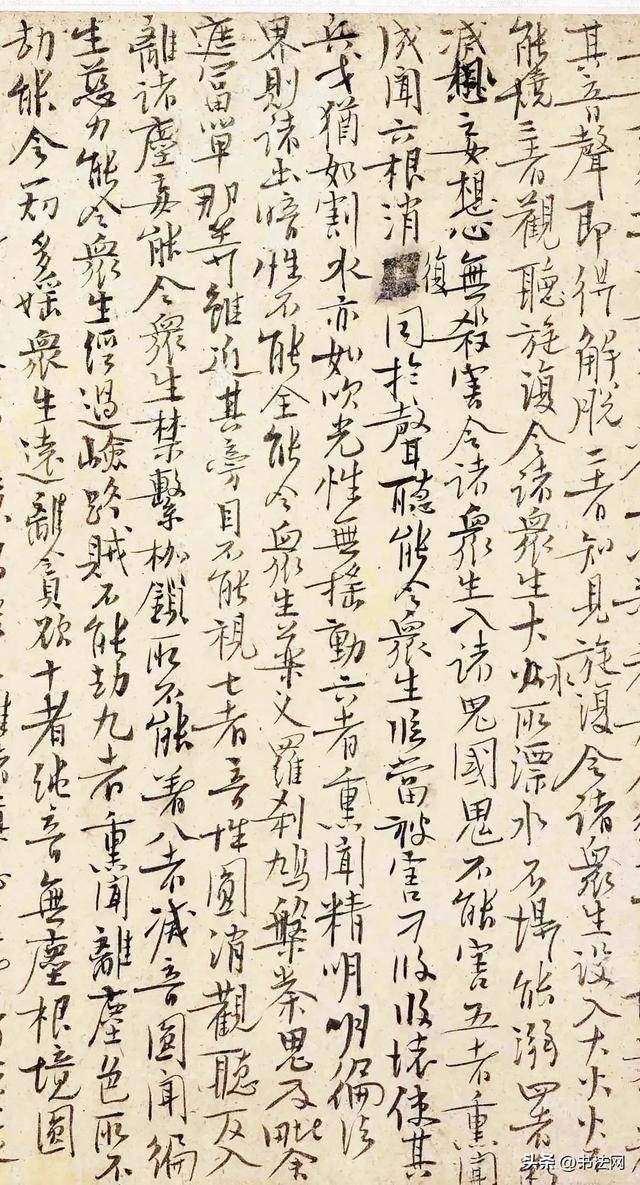 其音聲即得解脫二者知見旋復令諸衆生設入大火火不
能燒三者觀聽旋復令諸衆生大水所漂水不能溺四者
滅妄想心無殺害令諸衆生入諸鬼國鬼不能害五者熏聞
成聞六根消復同於聲聽能令衆生臨當被害刀段段壞使其
兵戈猶如割水亦如吹光性無搖動六者熏聞精明明徧法
界則諸幽暗性不能全能令衆生藥叉羅刹鳩槃茶鬼及毗舍
遮富單那等雖近其旁目不能視七者音性圓消觀聽反入
離諸塵妄能令衆生禁繫枷鎖所不能著八者滅音圓聞徧
生慈力能令衆生經過嶮路賊不能劫九者熏聞離塵色所不
劫能令一切多婬衆生遠離貪欲十者純音無塵根境圓
头条 @书法网